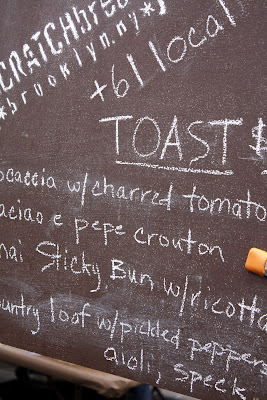 SCRATCHbre
*brooklyn,ny*
+611local
TOAST $
ocaccia w/charred tomato
aciao e pepe crouton
hai Sticky Bun w/ricotta
ountry loaf w/pickled peppers
aioli, speck